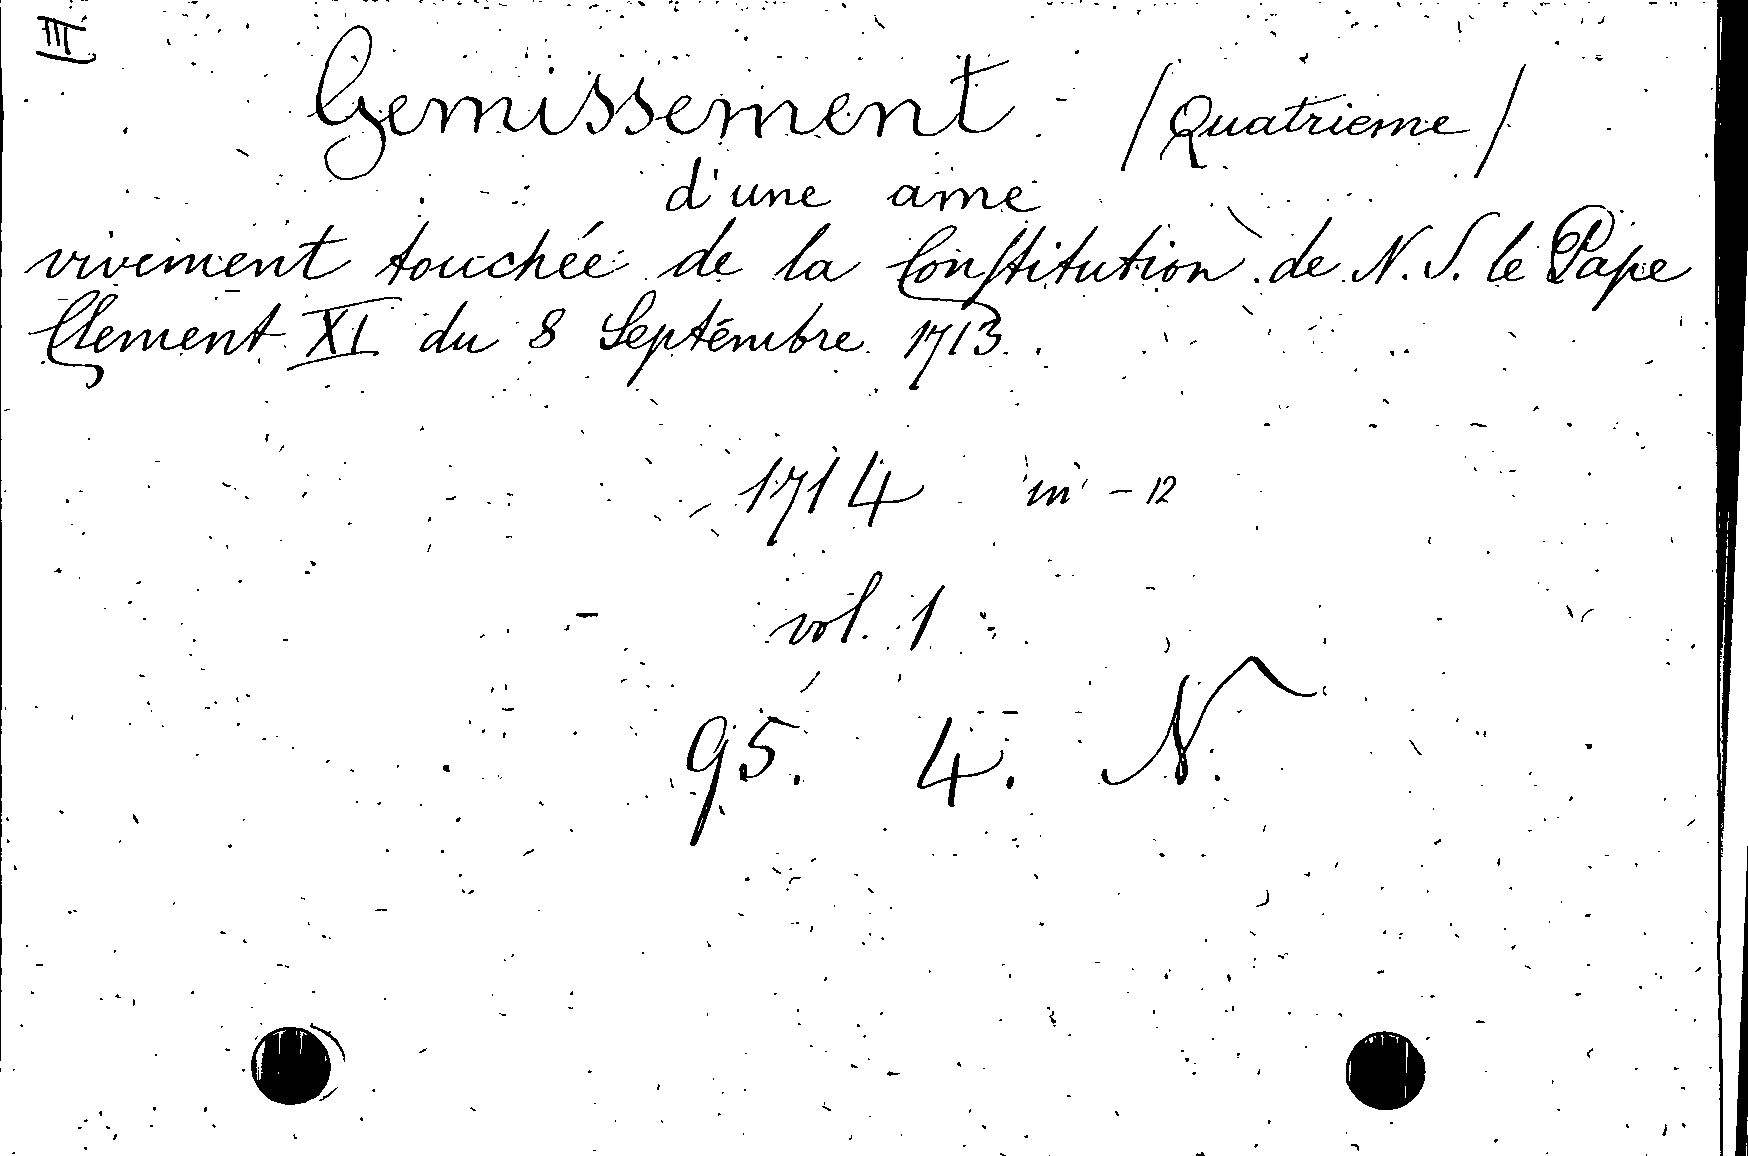 III
Gemissement (Quatrieme)
d'une ame
vivement touchée de la Constitution de N. S. le Pape
Clement XI du 8 Septembre 1713.
1714 in-12
vol. 1
95. 4. N.